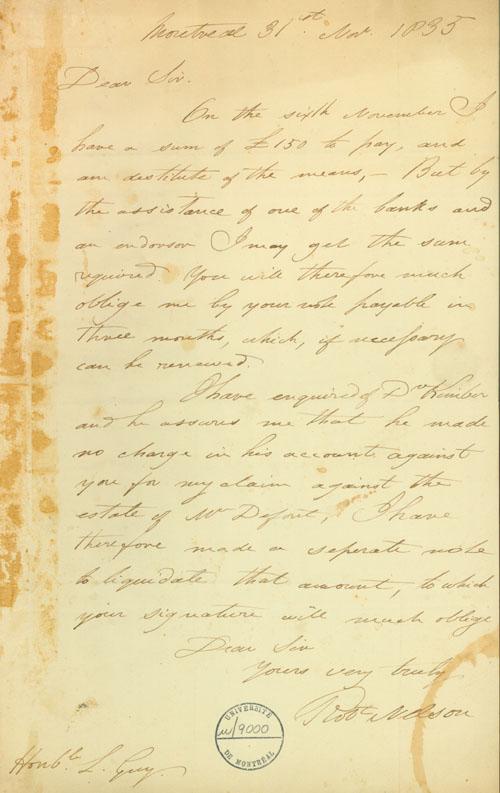 Montreal 31st. Nov. 1835
Dear Sir.
On the sixth November I
have a sum of £150 to pay, and
am destitute of the means,– But by
the assistance of one of the banks and
an endorsor I may get the sum
required. You will therefore much
oblige me by your note payable in
three months, which, if necessary
can be renewed.
I have enquired of Dr Kimber
and he assures me that he made
no charge in his account against
you for my claim against the
estate of Mr , I have
therefore made a seperate note
to liquidate that amount, to which
your signature will much oblige
Dear Sir
Yours very truly
Robt Nelson
UNIVERSITÉ
u/9000
DE MONTRÉAL
Honble L. Guy.